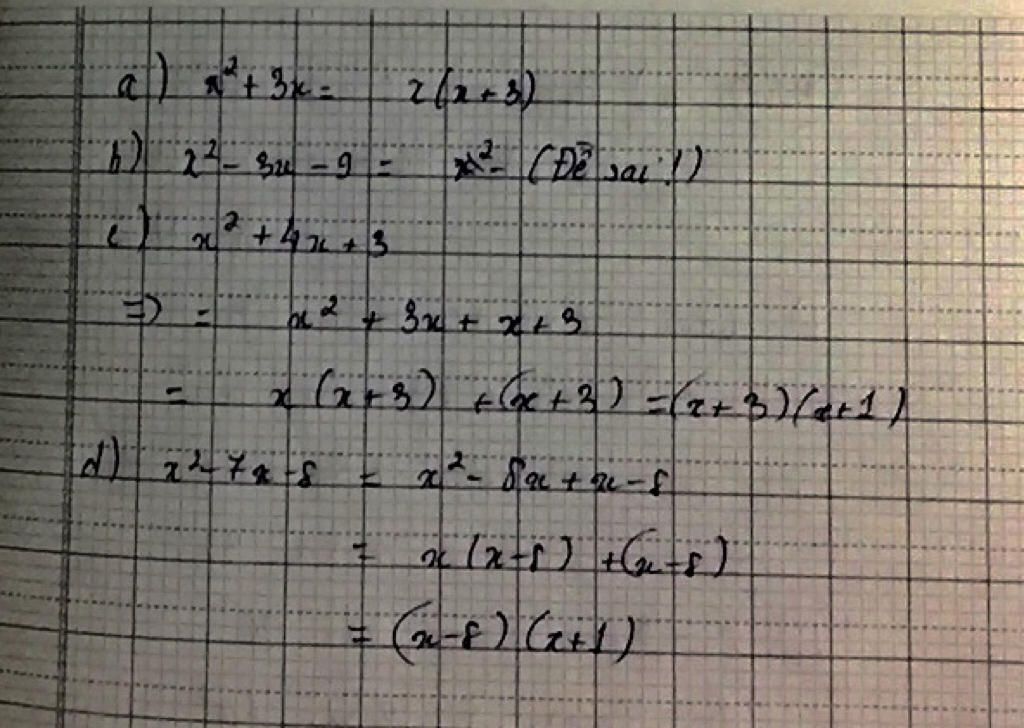 a) x² + 3x = x(x+3)
b) x² - 3x - 9 = x² - (Đề sai!)
c) x² + 4x + 3
=> = x² + 3x + x + 3
= x(x+3) + (x+3) = (x+3)(x+1)
d) x² - 7x - 8 = x² - 8x + x - 8
= x(x-8) + (x-8)
= (x-8)(x+1)